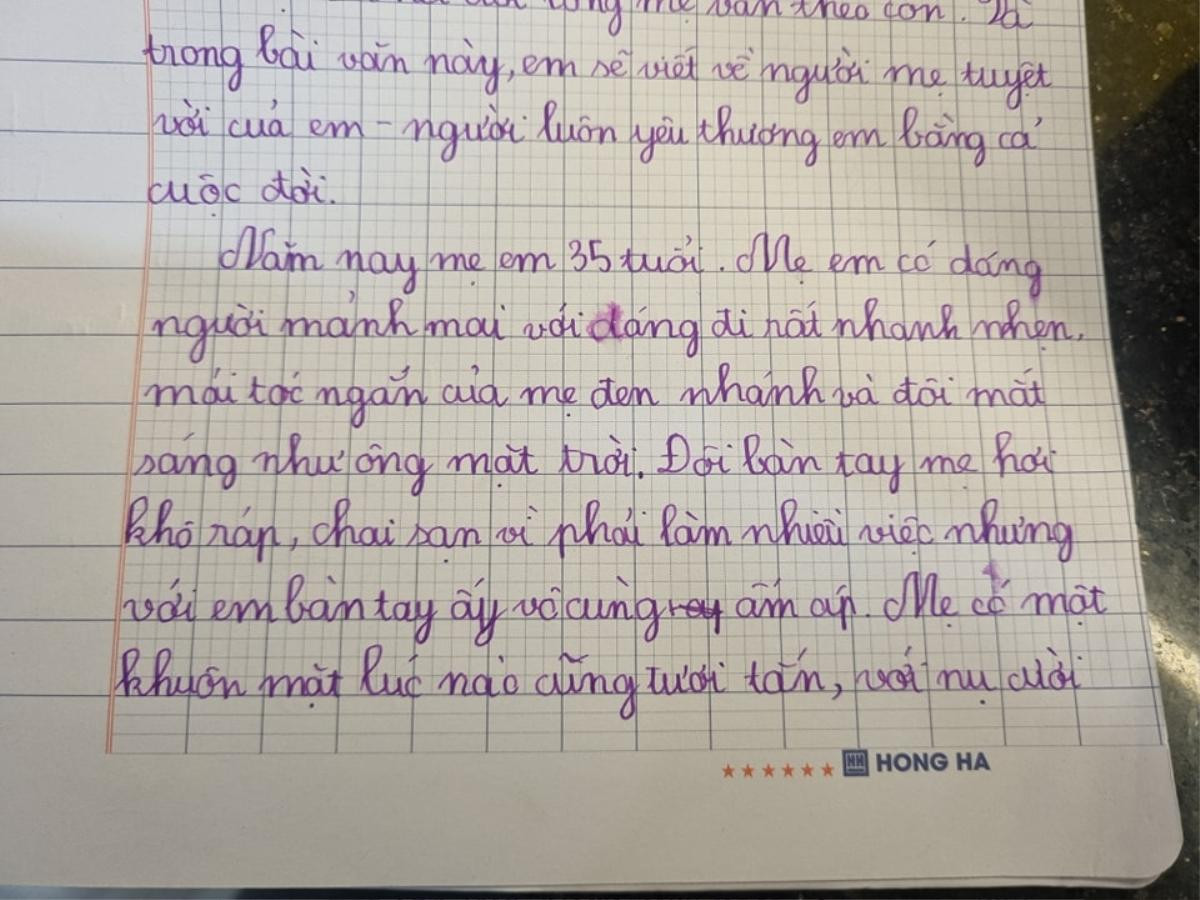 lòng mẹ vẫn theo con. Và
trong bài văn này, em sẽ viết về người mẹ tuyệt
vời của em - người luôn yêu thương em bằng cả
cuộc đời.
Năm nay mẹ em 35 tuổi. Mẹ em có dáng
người mảnh mai với dáng đi rất nhanh nhẹn,
mái tóc ngắn của mẹ đen nhánh và đôi mắt
sáng như ông mặt trời. Đôi bàn tay mẹ hơi
khô ráp, chai sạn vì phải làm nhiều việc nhưng
với em bàn tay ấy vô cùng ấm áp. Mẹ có một
khuôn mặt lúc nào cũng tươi tắn, với nụ cười
HONG HA